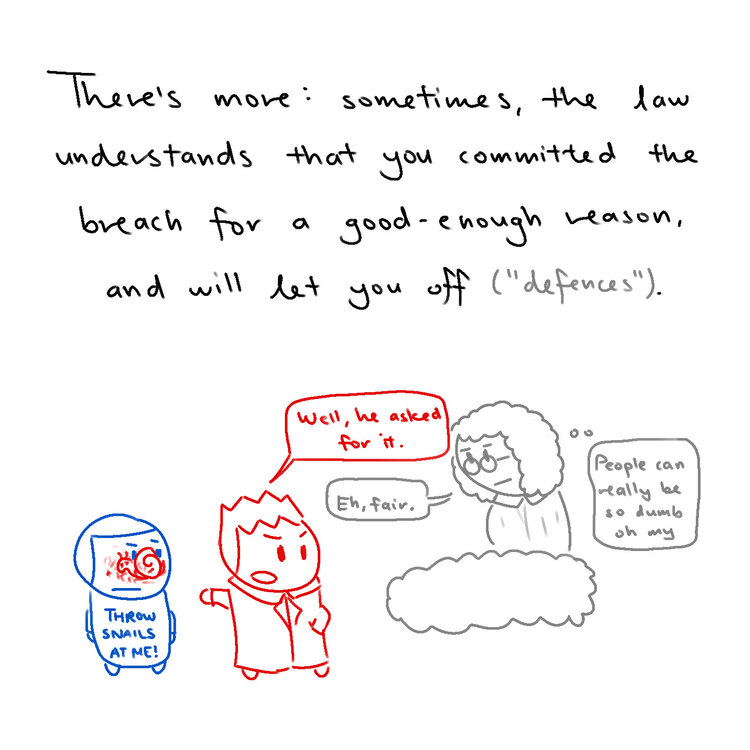 There's more: sometimes, the law
understands that you committed the
breach for a good-enough reason,
and will let you off ("defences").
Well, he asked
for it.
Eh, fair.
People can
really be
so dumb
oh my
THROW
SNAILS
AT ME!